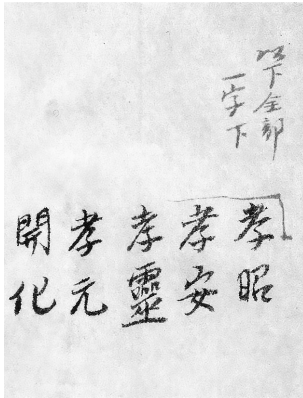 以下全部
一字下
孝昭
孝安
孝靈
孝元
開化